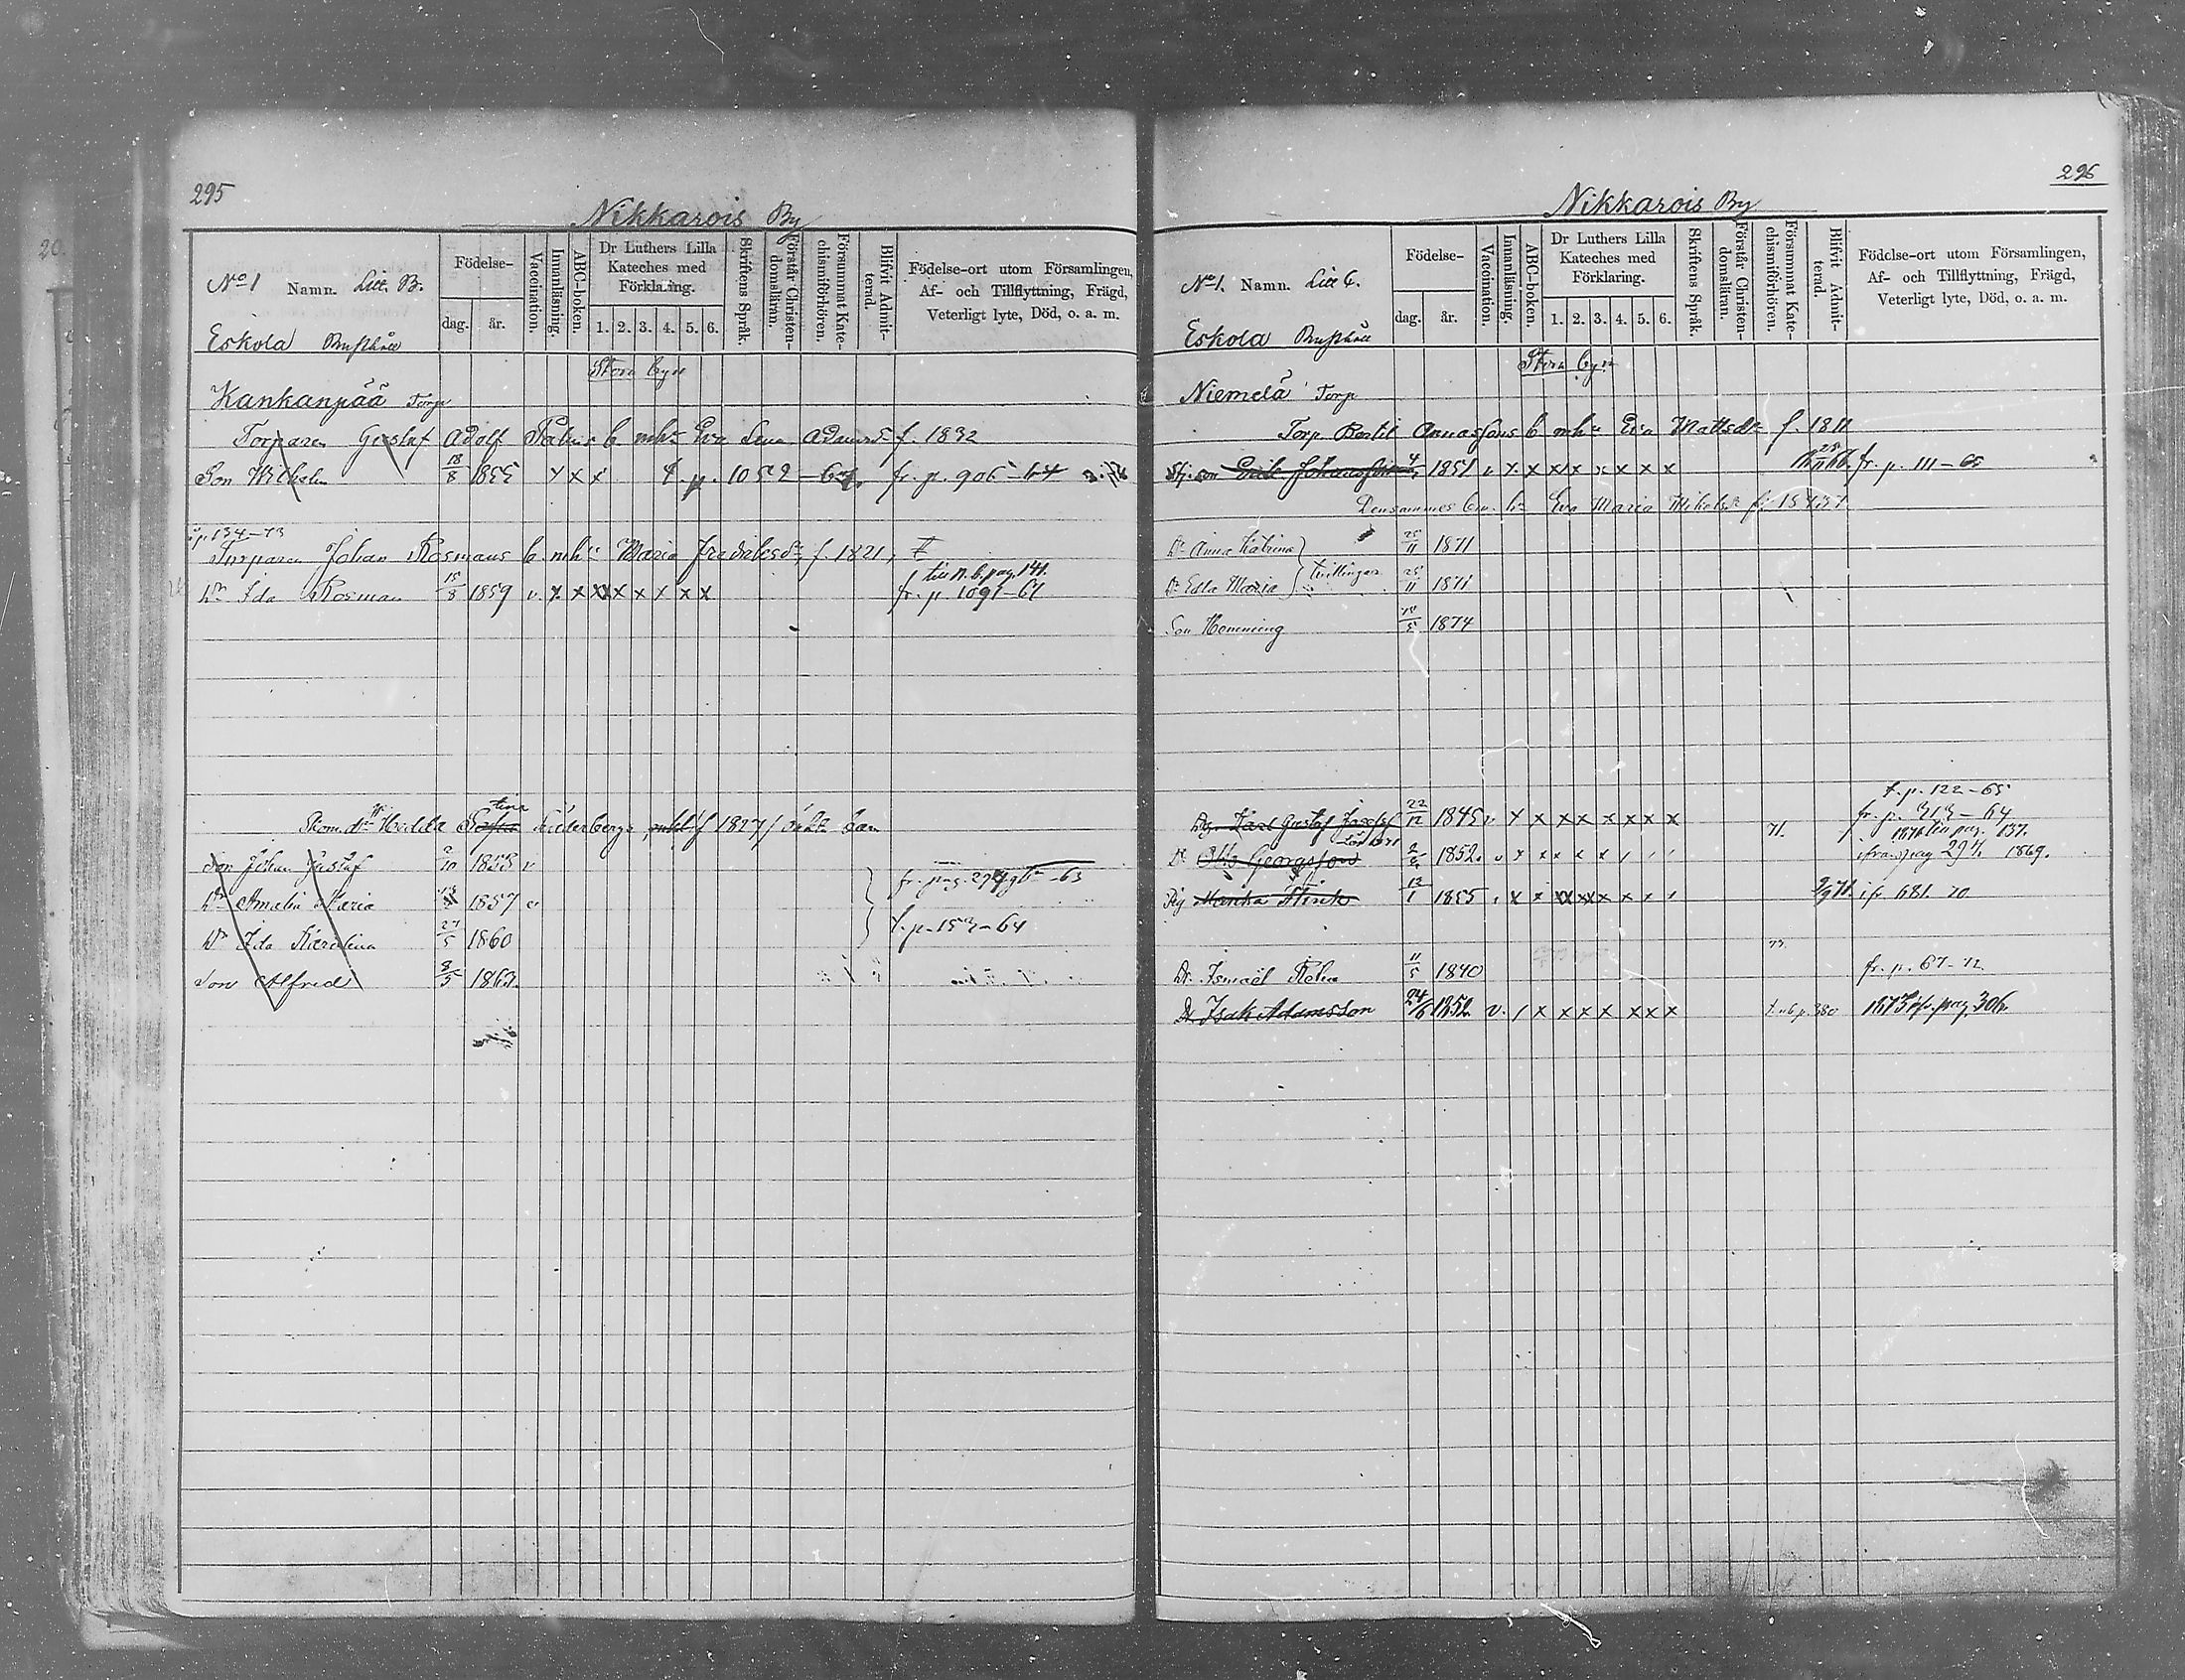 295
Nikkarois By
No 1 Namn. Litt. B.
Eskola Rusthåll
Födelse-
dag. år.
Vaccination.
Innanläsning.
ABC-boken.
Dr Luthers Lilla Kateches med Förklaring.
1. 2. 3. 4. 5. 6.
Skriftens Språk.
Förstår Christendomsläran.
Försummat Katechismiförhören.
Blifvit Admitterad.
Födelse-ort utom Församlingen,
Af- och Tillflyttning, Frägd,
Veterligt lyte, Död, o. a. m.
Stora byn
Kankanpää Torp
Torparen Gustaf Adolf b. mhu Eva Lena Adamsdr f. 1832
Son Wilhelm 18/8 1855 x x x t. p. 1052 fr. p. 906-64
i p. 134-73
Torparen Johan Rosmans b. mhu Maria Fredriksdr, f. 1821,
till n. b. pag. 141.
Dr Ida Rosman 15/8 1859 v. x x x x x x x x fr. p. 1091-61
Hedda Sofia Söderbergs f 1827
Son Johan Gustaf 2/10 1853 v
fr. pag. -63
Dr Amalia Maria 1857 v
t. p. 153-64
Dr Ida Karolina 27/5 1860
Son Alfred 8/5 1863.
296
Nikkarois By
No 1. Namn. Litt C.
Eskola Rusthåll
Födelse-
dag. år.
Vaccination.
Innanläsning.
ABC-boken.
Dr Luthers Lilla Kateches med Förklaring.
1. 2. 3. 4. 5. 6.
Skriftens Språk.
Förstår Christendomsläran.
Försummat Katechismiförhören.
Blifvit Admitterad.
Födelse-ort utom Församlingen,
Af- och Tillflyttning, Frägd,
Veterligt lyte, Död, o. a. m.
Stora byn
Niemelä Torp
Torp. Bertil Annassons b mhu Eva Mattsdr f. 1811
Stj. son Erik Johansson 1851 v x x x x x x x x fr. p. 111-65
Densammes b. Eva Maria f.
Dr Anna Katrina 25/11 1871
tvillingar
Dr Edla Maria 25/11 1871
Son Hemming 1874
t. p. 122-65
fr. p. 313-64
Dr. Karl Gustaf 22/12 1845 v. x x x x x x x x 71. 1871 till pag. 137.
Dr Otto Georgsson 2/2 1852. v x x x x x ifrån pag 294 1869.
Pig 1855 x x x x x x 2/9 71. i p 681. 70
73.
Dr. Ismaël 11/5 1840 fr. p. 67-72
Dr. Isak Adamsson 24/6 1852 v. / x x x x x x x t. n b p. 380 1873 ifr. pag. 306.